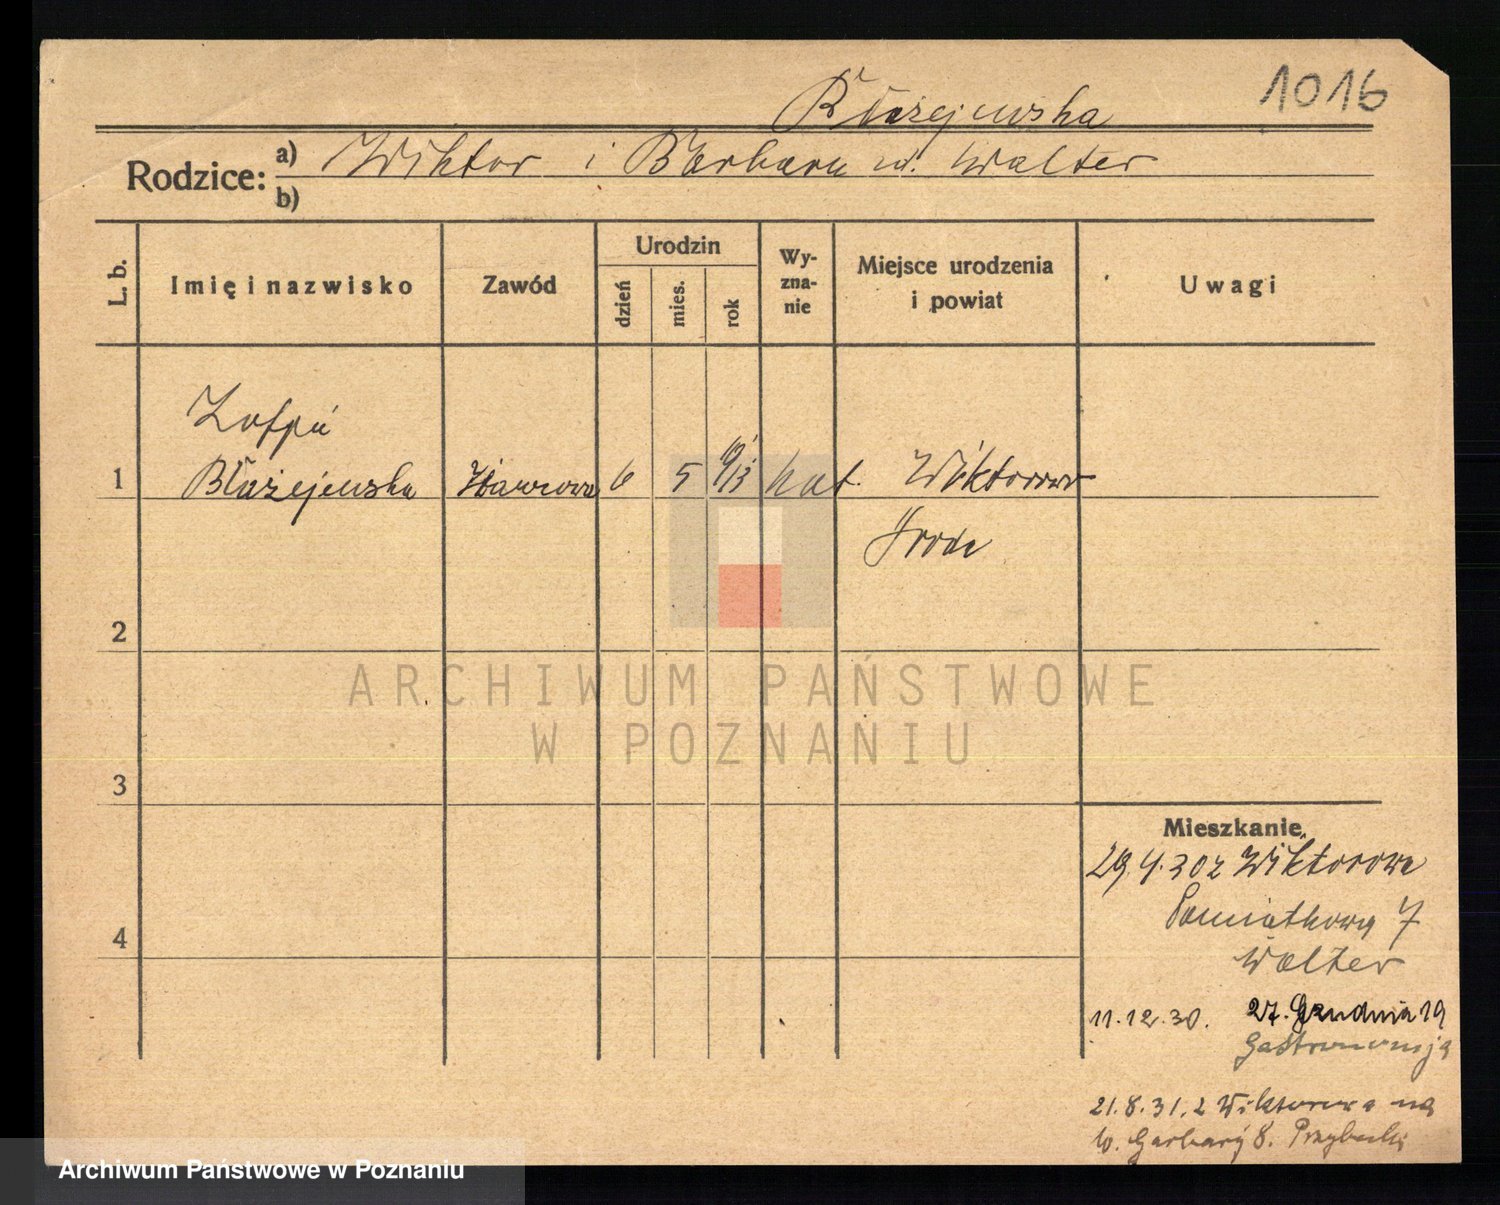 1016
Błażejewska
Rodzice: a) Wiktor i Barbara w. Walter
b)
L. b. Imię i nazwisko Zawód Urodzin dzień mies. rok Wy-zna-nie Miejsce urodzenia i powiat Uwagi
Zofja
1 Błażejewska 6 5 13 kat. Wiktorowo
Środa
2
ARCHIWUM PAŃSTWOWE
W POZNANIU
3
Mieszkanie
29.4.30 z Wiktorowa
4 Pamiątkowa 7
Walter
11.12.30. 27. Grudnia 19
Gastronomja
21.8.31. z Wiktorowa na
W. Garbary 8. Przybecki
Archiwum Państwowe w Poznaniu